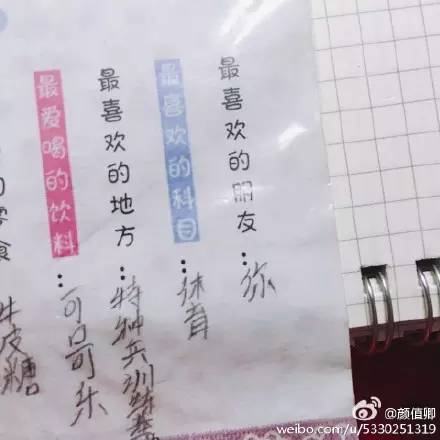 最喜欢的朋友:你
最喜欢的科目:体育
最喜欢的地方:特种兵训练基
最爱喝的饮料:可口可乐
的零食
牛皮糖
@颜值卿
weibo.com/u/5330251319